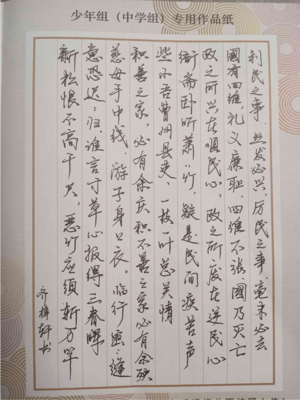 少年组（中学组）专用作品纸
利民之事，丝发必兴，厉民之事，毫末必去
國有四维，礼义廉耻，四维不张，國乃灭亡
政之所兴在顺民心，政之所废在逆民心
衙斋卧听萧〃竹，疑是民间疾苦声
些小吾曹州县吏，一枝一叶总关情
积善之家，必有余庆积不善之家必有余殃
慈母手中线，游子身上衣，临行密〃缝
意恐迟〃归，谁言寸草心报得三春晖
新松恨不高千尺，恶竹应须斩万竿
齐梓轩书